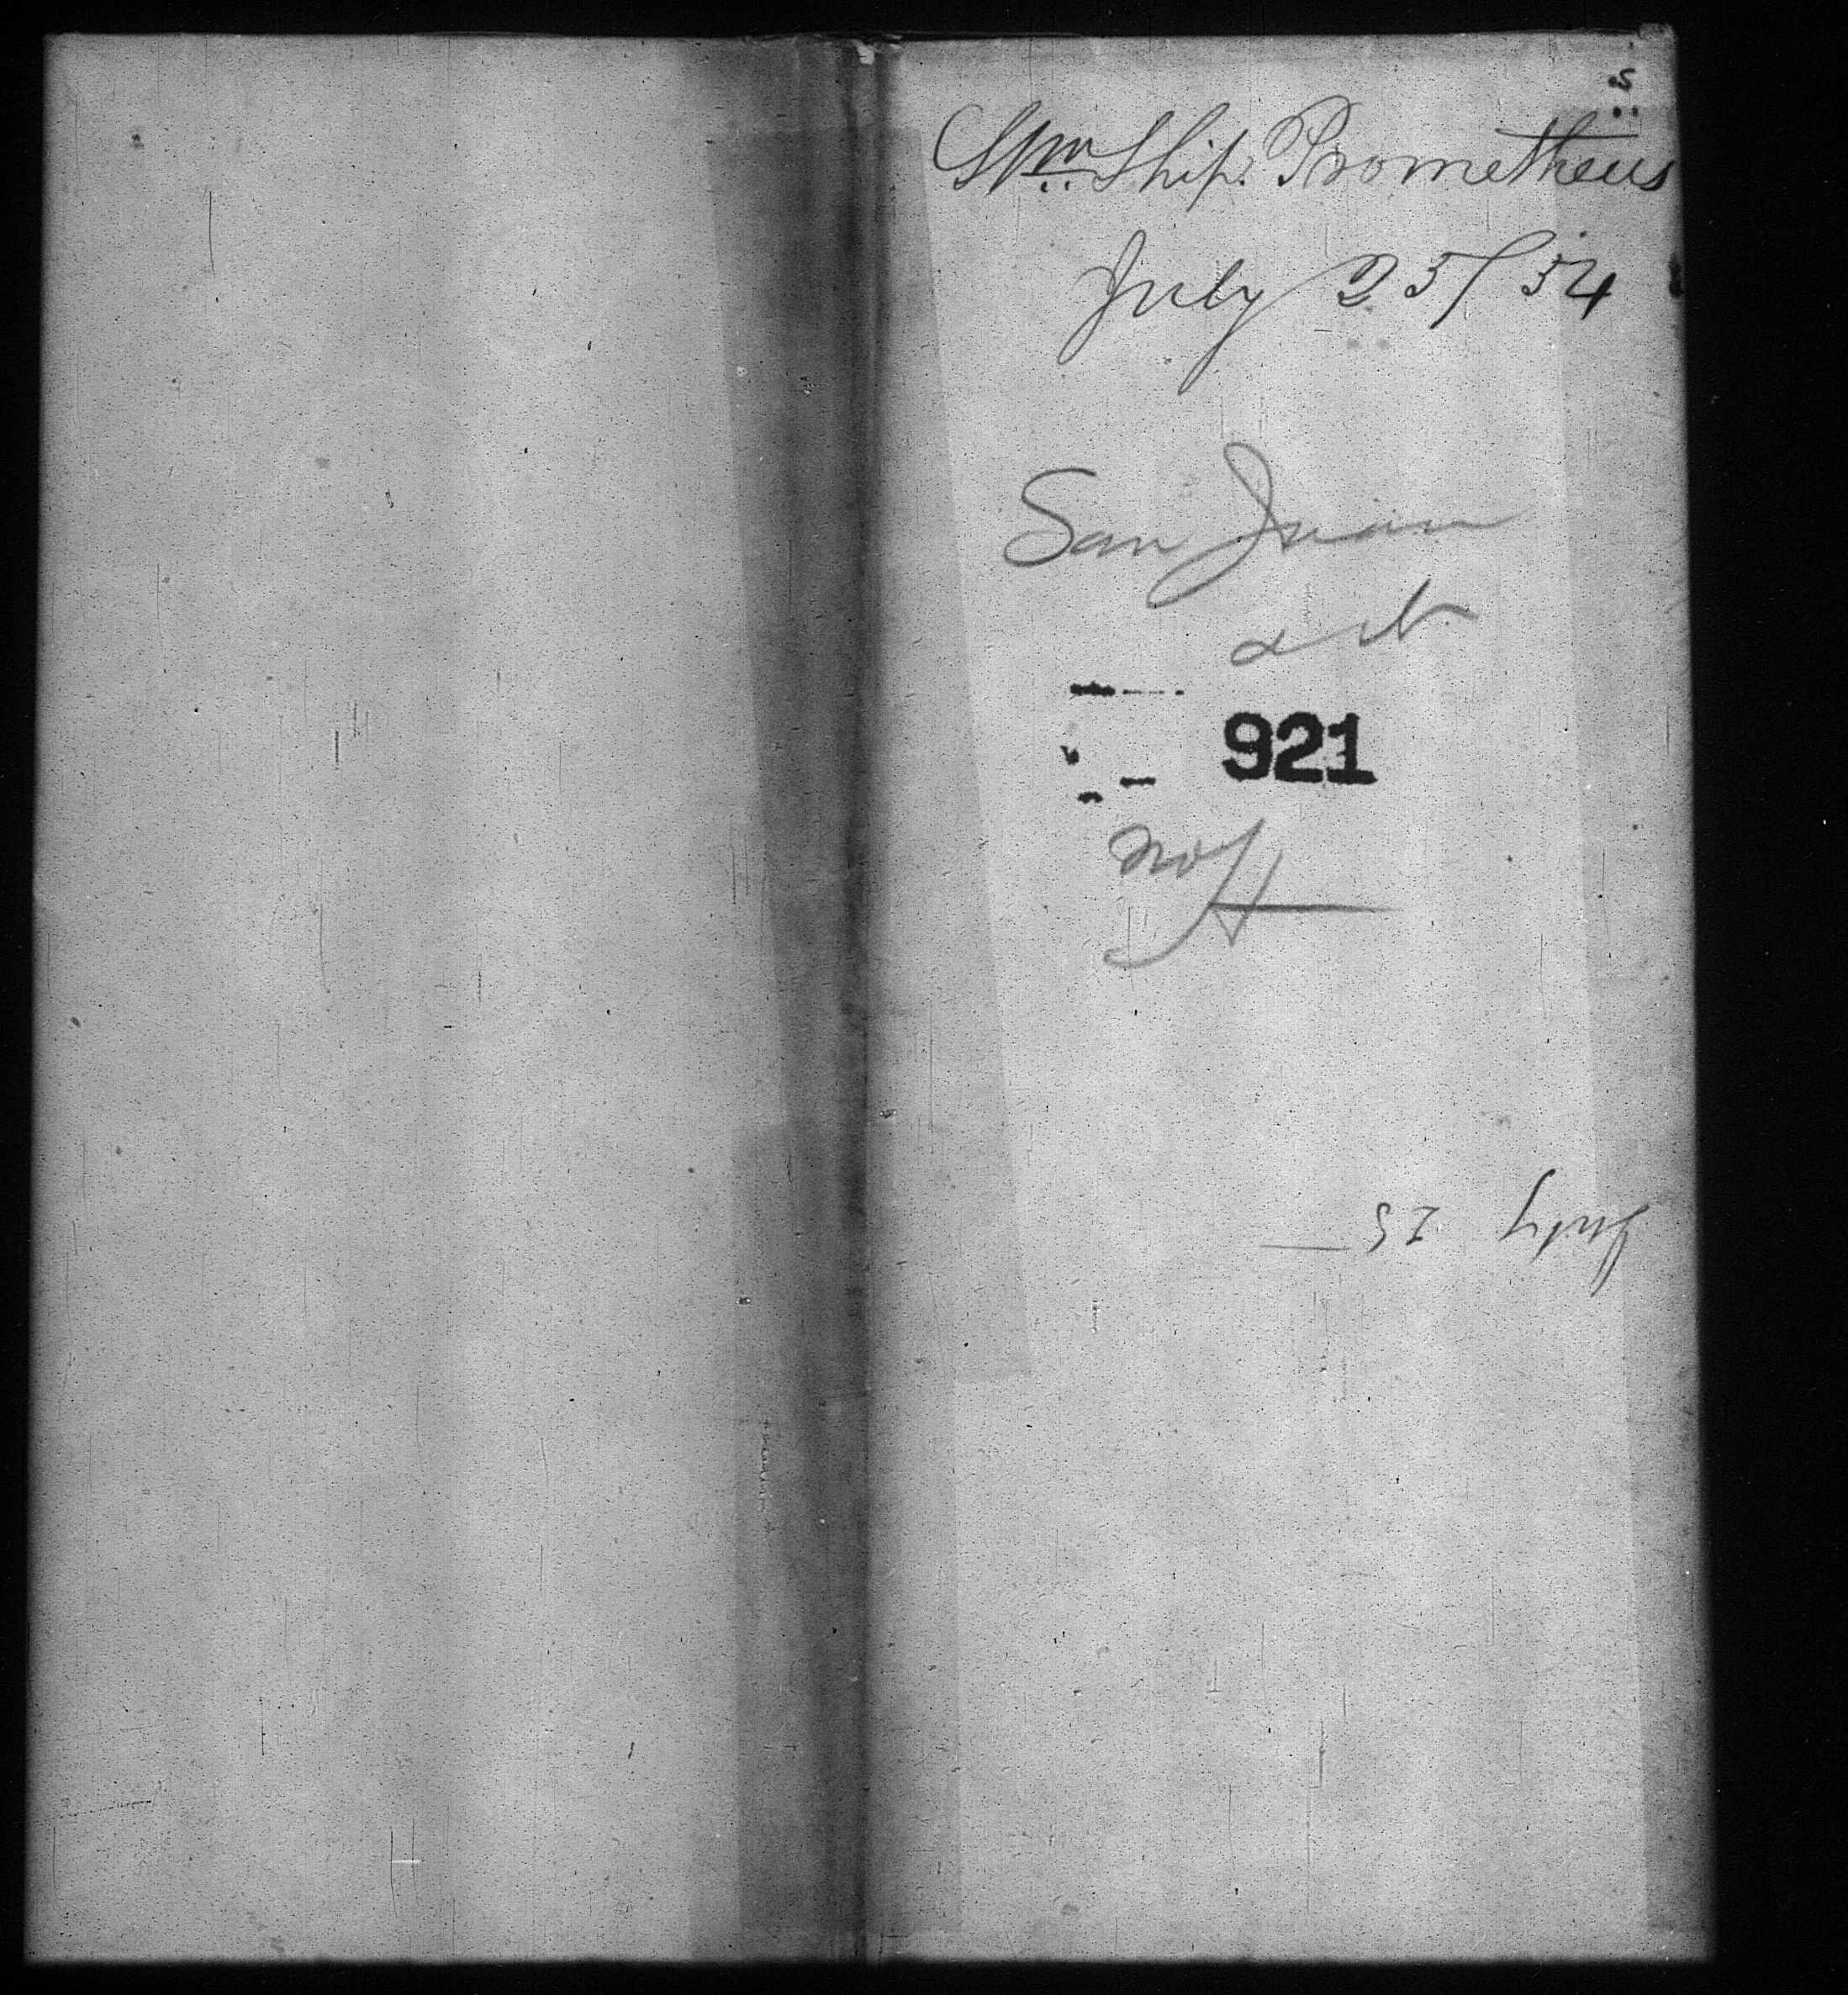 Stm Ship. Prometheus
July 25/54
San Juan
921
July 25